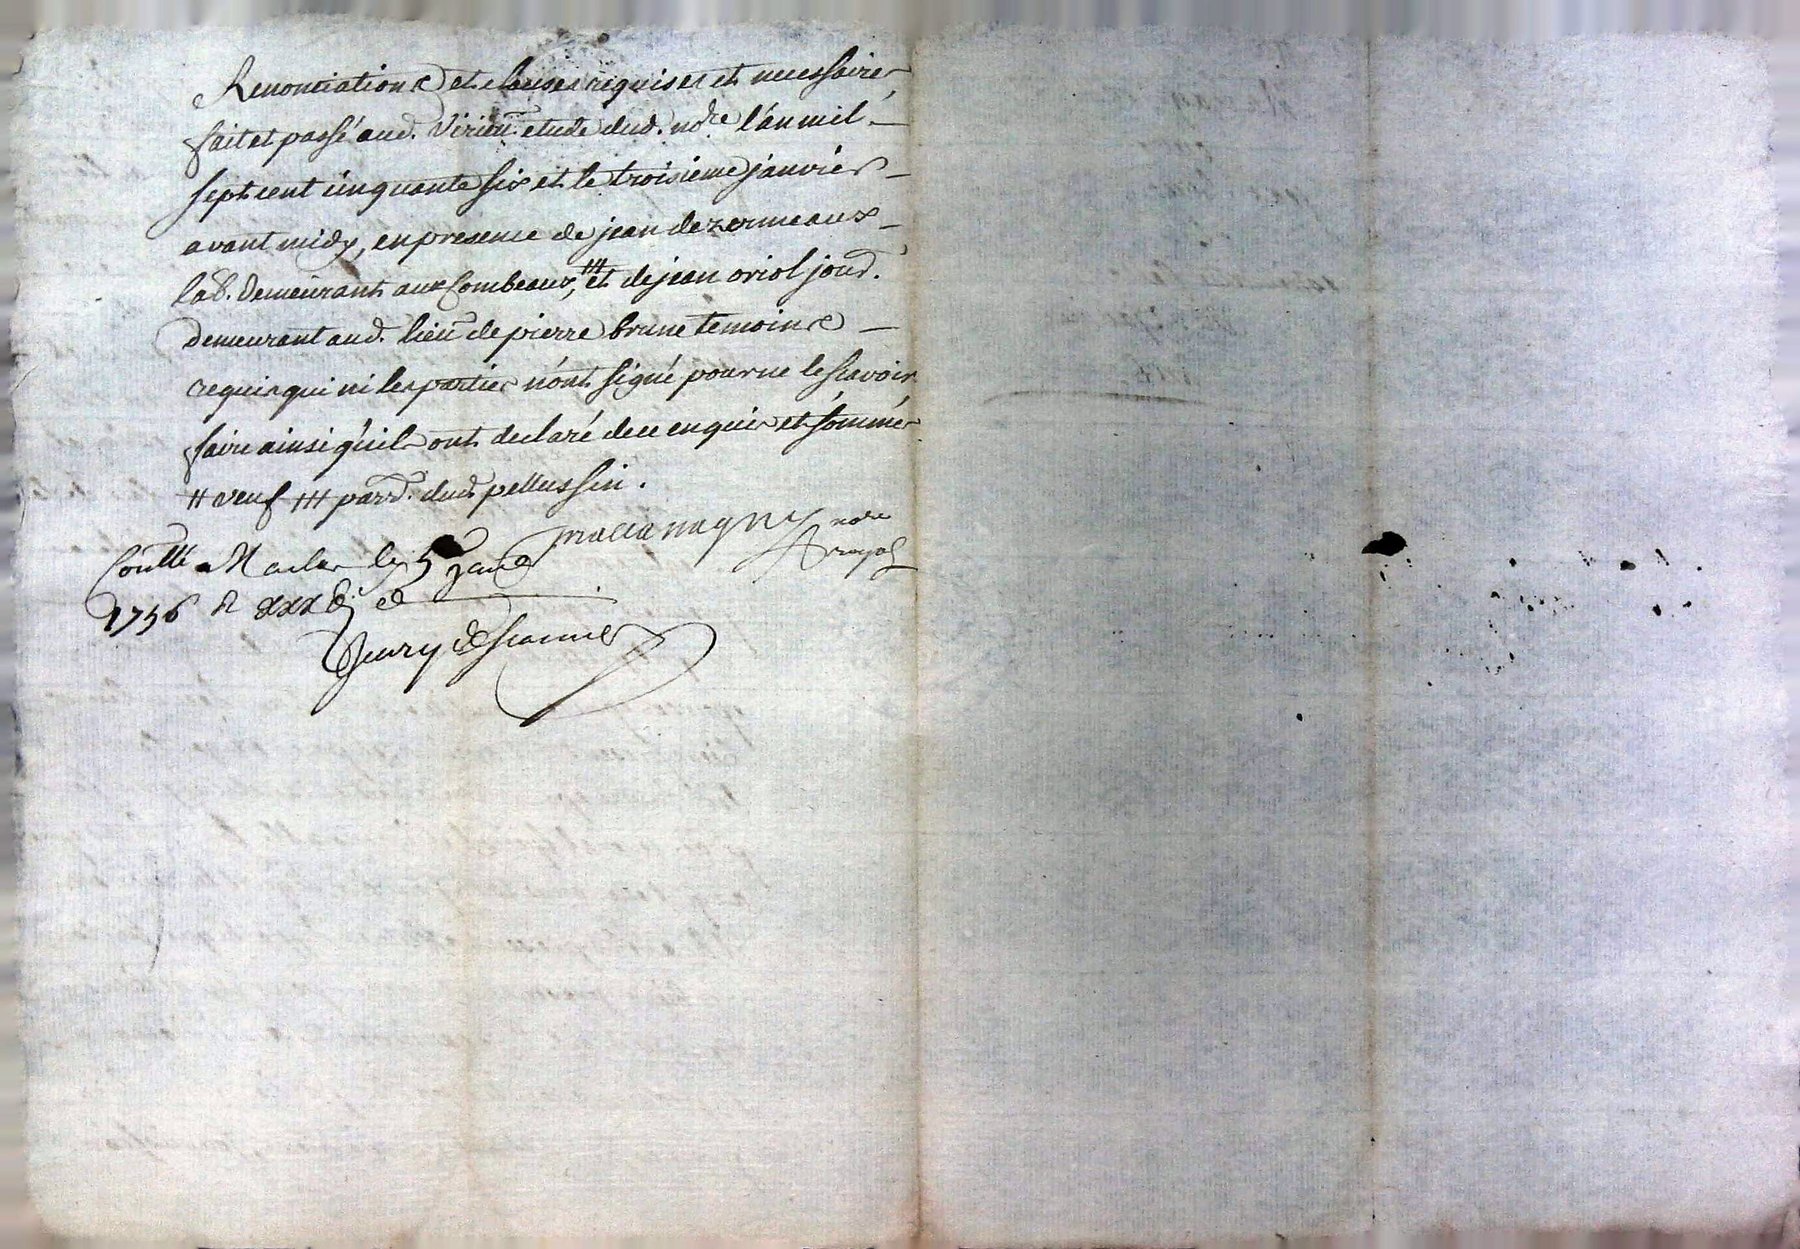 Renonciations et clauses requises et necessaires
fait et passé aud. Virieu etude dud. nore l'an mil
sept cent cinquante six et le troisieme janvier
avant midy, en presence de jean dezormeaux
lab. demeurant aux Combeaux, ### et de jean oriol jourd.
demeurant aud. lieu de pierre brune temoins
requis qui ni les parties n'ont signé pour ne le scavoir
faire ainsi qu'ils ont declaré de ce enquis et sommés
## veuf ### parr. dud pellussin.
nore
royal
Conllé a Maclas le 5 janr
1756 R